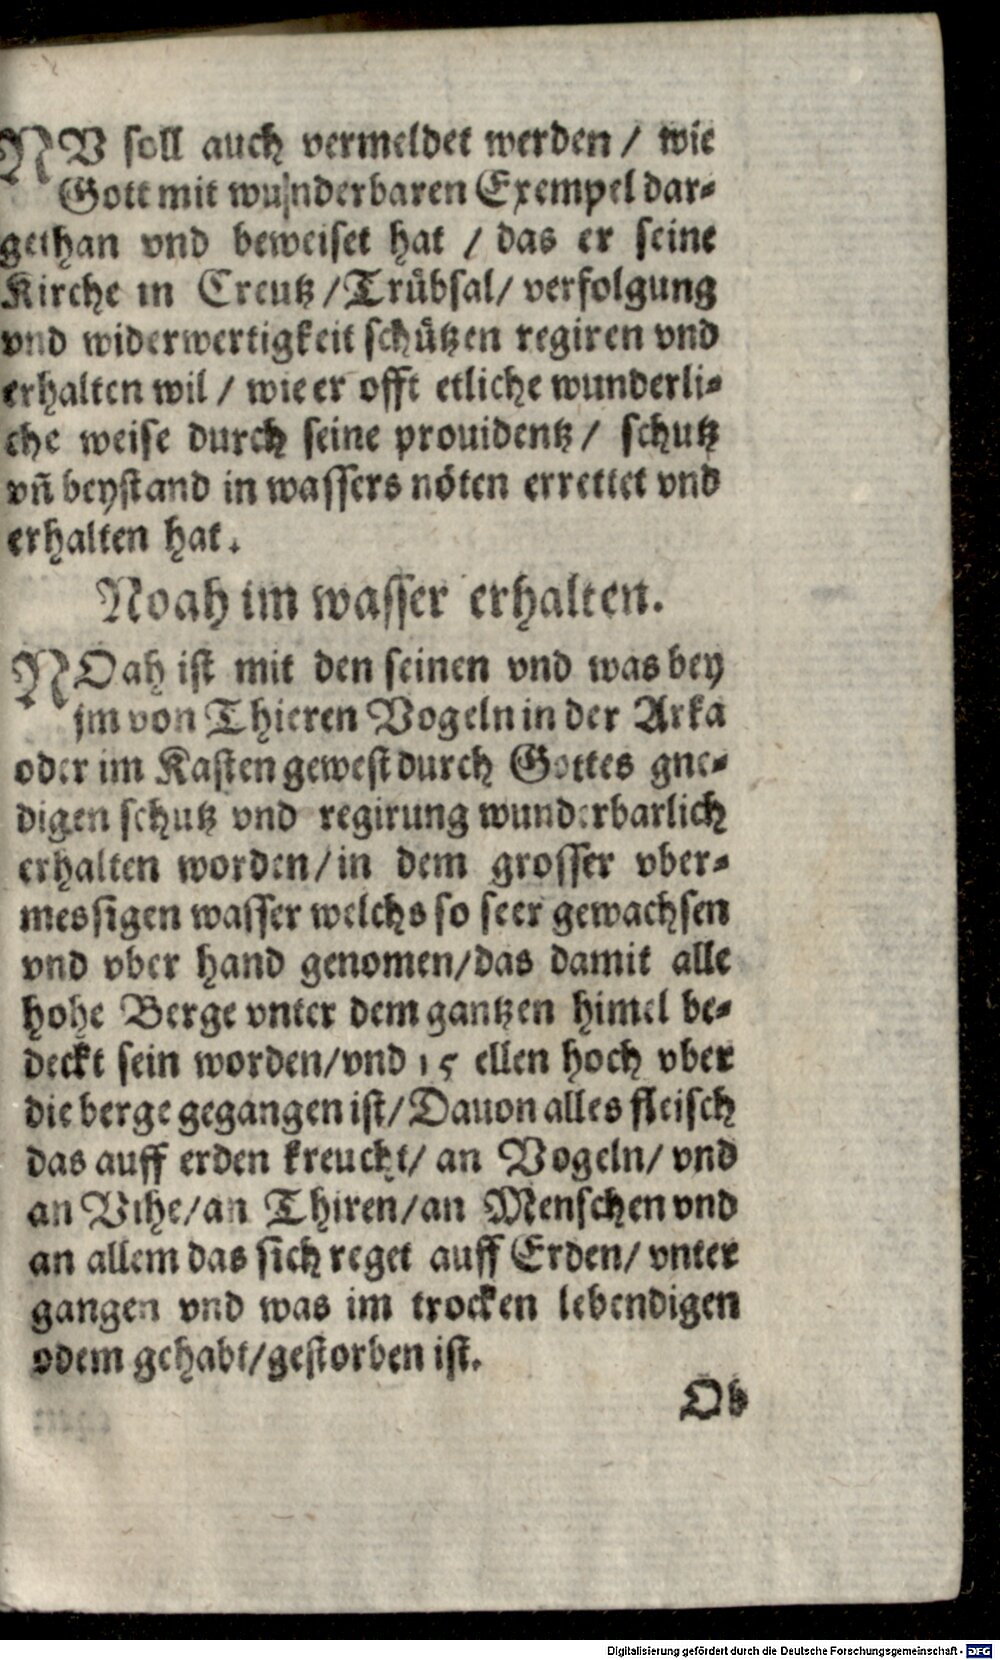 NV soll auch vermeldet werden / wie
Gott mit wunderbaren Exempel dar-
gethan vnd beweiset hat / das er seine
Kirche in Creutz / Trübsal / verfolgung
vnd widerwertigkeit schützen regiren vnd
erhalten wil / wie er offt etliche wunderli-
che weise durch seine prouidentz / schutz
vñ beystand in wassers nöten errettet vnd
erhalten hat.
Noah im wasser erhalten.
NOah ist mit den seinen vnd was bey
jm von Thieren Vogeln in der Arka
oder im Kasten gewest durch Gottes gne-
digen schutz vnd regirung wunderbarlich
erhalten worden / in dem grosser vber-
messigen wasser welchs so seer gewachsen
vnd vber hand genomen / das damit alle
hohe Berge vnter dem gantzen himel be-
deckt sein worden / vnd 15 ellen hoch vber
die berge gegangen ist / Dauon alles fleisch
das auff erden kreucht / an Vogeln / vnd
an Vihe / an Thiren / an Menschen vnd
an allem das sich reget auff Erden / vnter
gangen vnd was im trocken lebendigen
odem gehabt / gestorben ist.
Ob
Digitalisierung gefördert durch die Deutsche Forschungsgemeinschaft - DFG